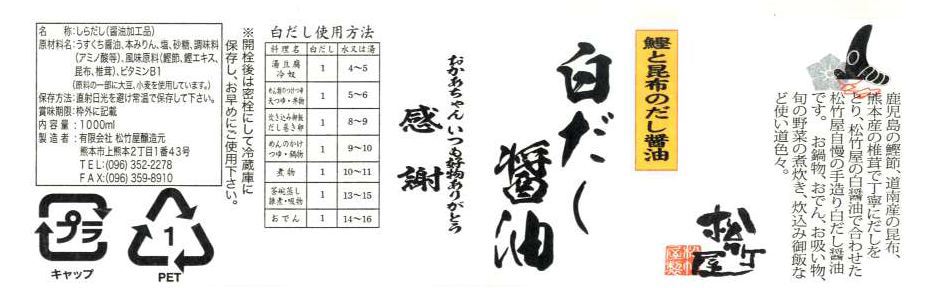 名　称:しらだし(醤油加工品)
原材料名:うすくち醤油、本みりん、塩、砂糖、調味料
(アミノ酸等)、風味原料(鰹節、鰹エキス、
昆布、椎茸)、ビタミンB1
(原料の一部に大豆、小麦を使用しています。)
保存方法:直射日光を避け常温で保存して下さい。
賞味期限:枠外に記載
内容量:1000ml
製造者:有限会社 松竹屋醸造元
熊本市上熊本2丁目1番43号
TEL:(096) 352-2278
FAX:(096) 359-8910
※開栓後は密栓にして冷蔵庫に
保存し、お早めにご使用下さい。
プラ
キャップ
1
PET
白だし使用方法
料理名 白だし 水又は湯
湯豆腐
冷奴 1 4~5
めん類のつけつゆ
天つゆ・丼物 1 5~6
炊き込み御飯
だし巻き卵 1 8~9
めんのかけ
つゆ・鍋物 1 9~10
煮物 1 10~11
茶碗蒸し
雑煮・吸物 1 13~15
おでん 1 14~16
おかあちゃん いつも好物ありがとう
感謝
白だし
醤油
鰹と昆布のだし醤油
松竹屋
鹿児島の鰹節、道南産の昆布、
熊本産の椎茸で丁寧にだしを
とり、松竹屋の白醤油で合わせた
松竹屋自慢の手造り白だし醤油
です。 お鍋物、おでん、お吸い物、
旬の野菜の煮炊き、炊込み御飯な
ど使い道色々。